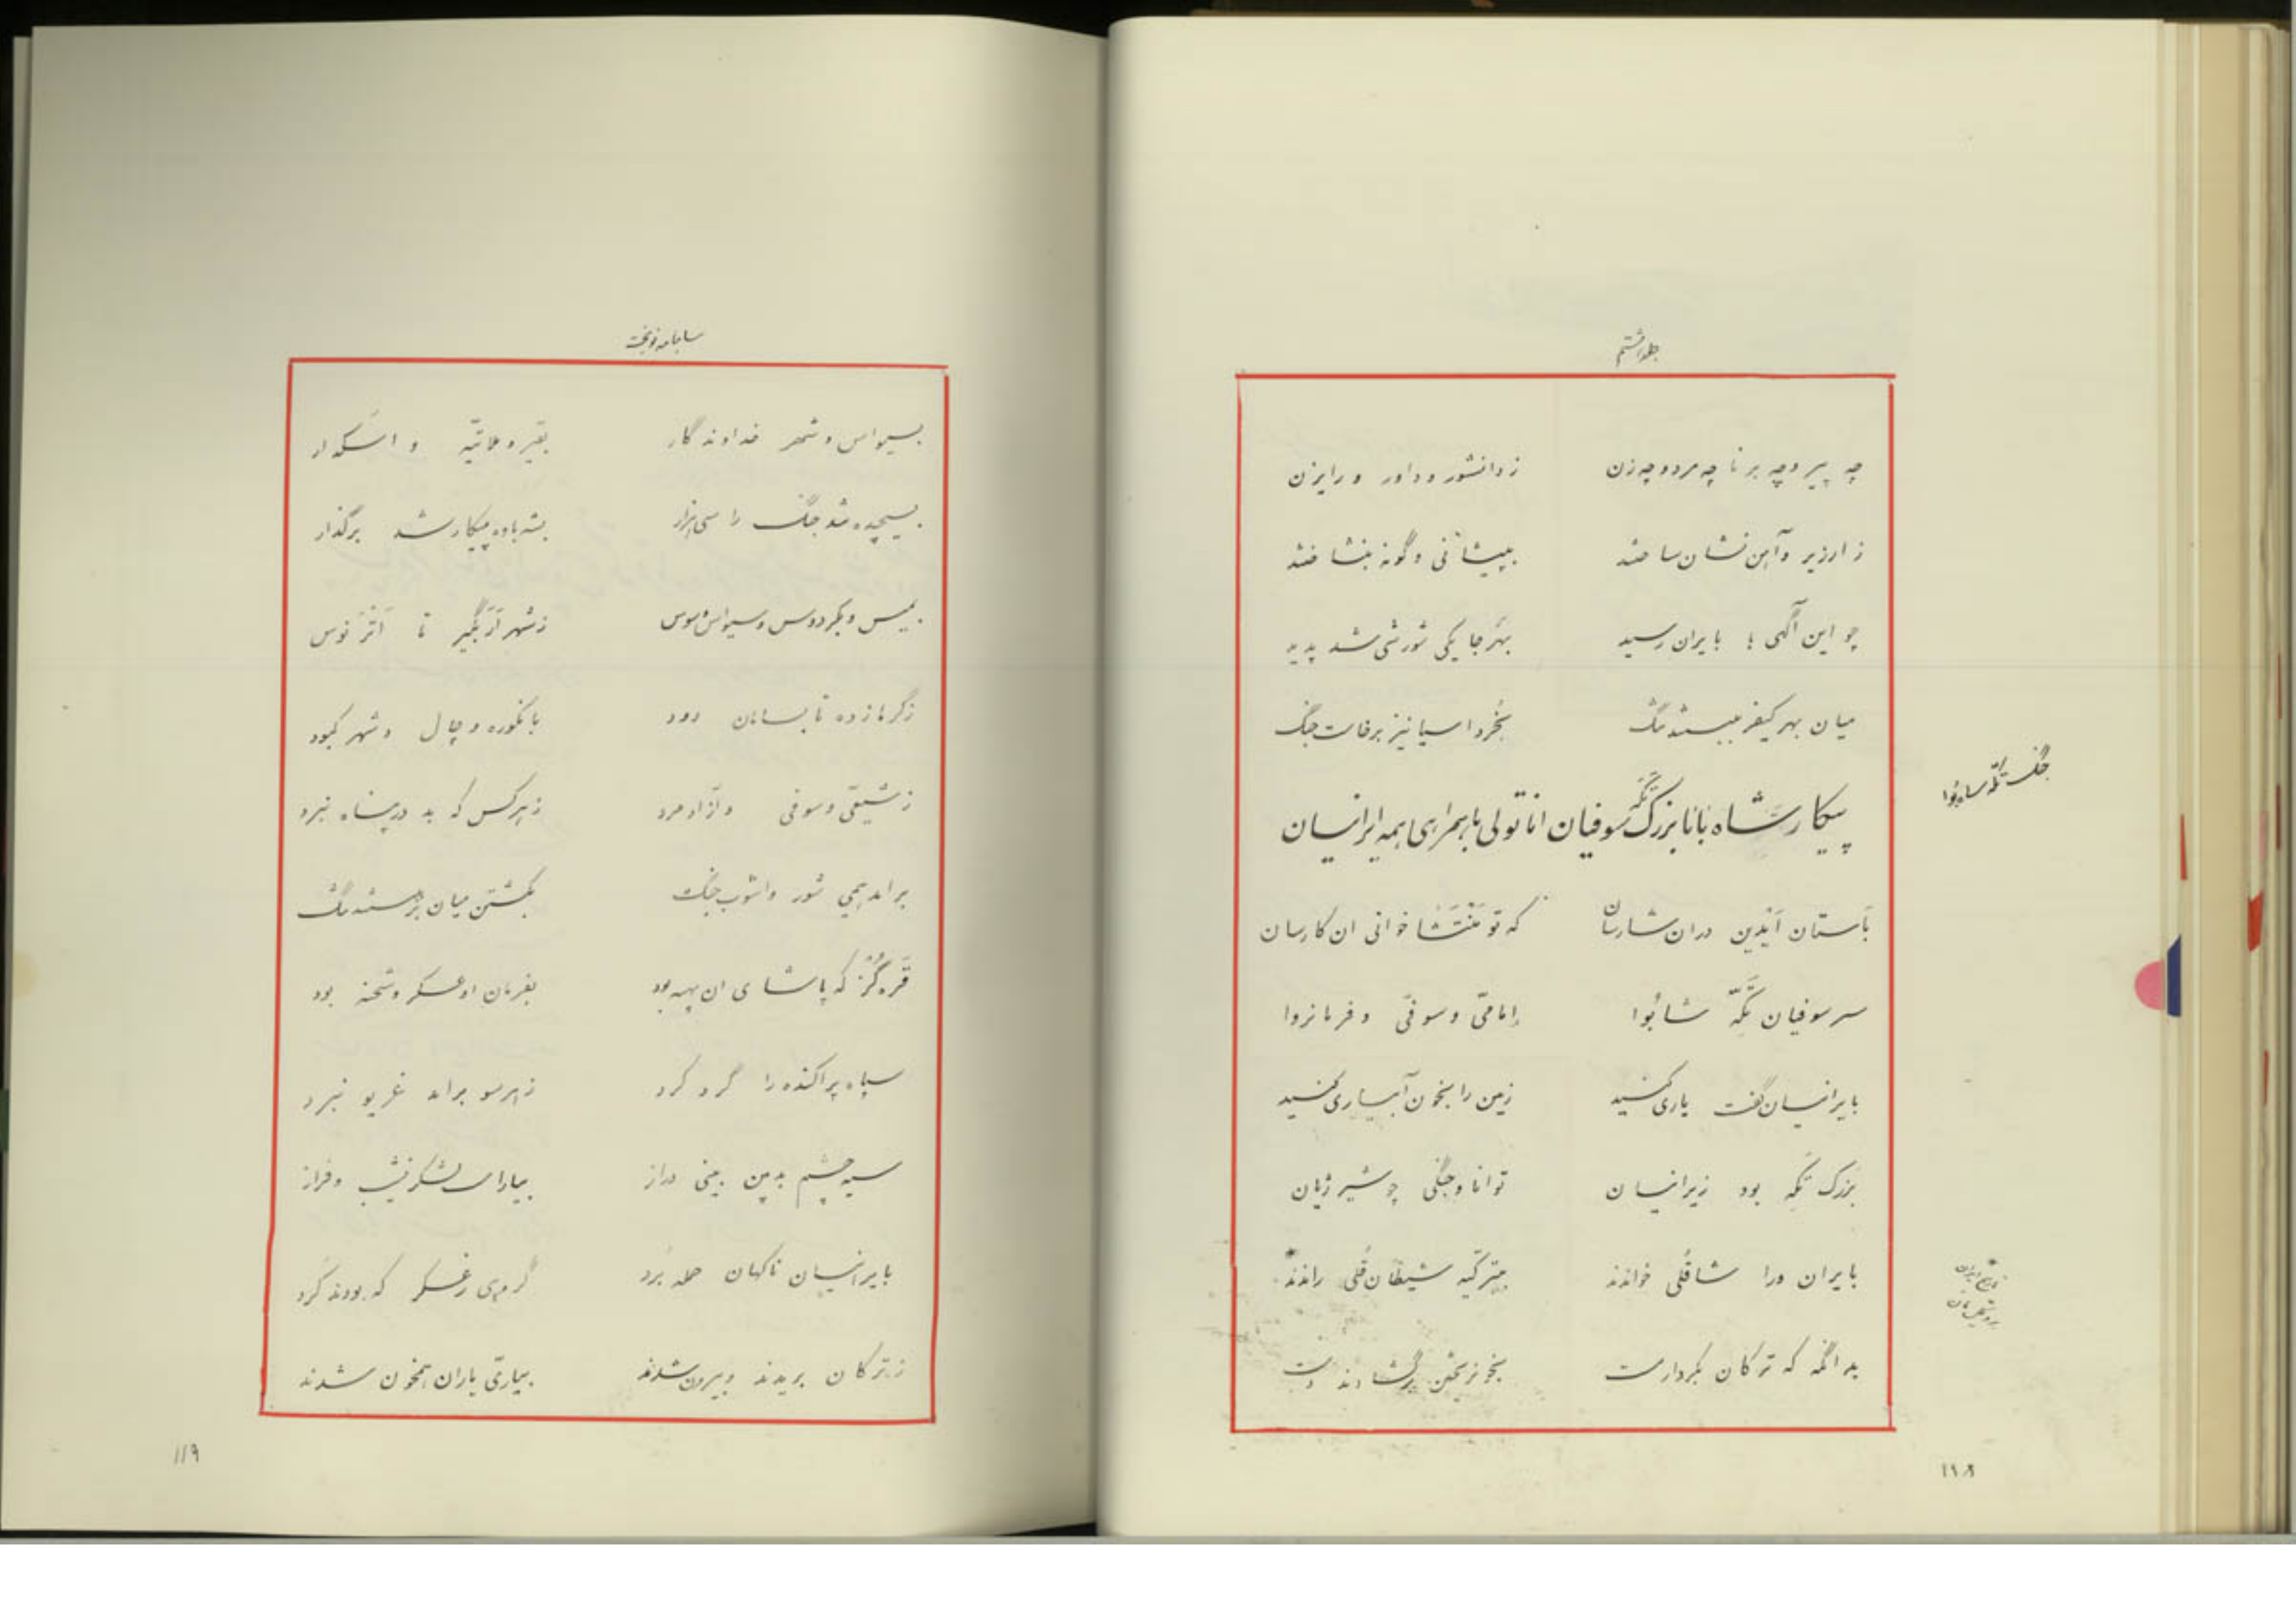 جلد هشتم
چه پیر و چه برنا چه مرد و چه زن ز دانشور و داور و رایزن
ز ارزیر و آهن نشان ساختند بپیشانی و گونه بنشاختند
چو این آگهی ؛ بایران رسید بهرجا یکی شورشی شد پدید
میان بهر کیفر ببستند تنگ بخرد اسیا نیز برخاست جنگ
جنگ تکه شاه بوا
پیکار شاه بابا بزرگ تکه سوفیان اناتولی با همراهی همه ایرانیان
باستان آیدین دران شارسان که تو منتشا خوانی ان کارسان
سر سوفیان تکه شابوا امامی و سوفی و فرمانروا
بایرانیان گفت یاری کنید زمین را بخون آبیاری کنید
بزرگ تکه بود زیرانیان توانا و جنگی چو شیر ژیان
بایران ورا شاقلی خواندند بترکیه شیطان قلی راندند
بدانگه که ترکان بکردار مست بخونریختن برگشادند دست
۱۱۸
سابنامه نوبخت
بسیواس و شهر خداوندگار بقیر و ملاتیه و اسکدار
بسیچیده شد جنگ را سی هزار بشه باوه پیکار شد برگذار
ز شهر ازنگیر تا
زگرمازده تا بسامان رود بانگوره و چال و شهر کبود
ز شیعی و سوفی و آزادمرد زهرکس که بد در پناه نبرد
برامد همی شور و اشوب جنگ بکشتن میان بر ببستند تنگ
قره گز که پاشای ان پهنه بود بفرمان او عسکر و شحنه بود
سپاه پراکنده را گرد کرد زهرسو برامد غریو نبرد
سیه چشم بدبین بینی دراز بیاراست لشکر نشیب و فراز
بایرانیان ناگهان حمله برد گروهی ز عسکر که بودند کرد
ز ترکان بریدند و بیرون شدند بیاری یاران همخون شدند
۱۱۹